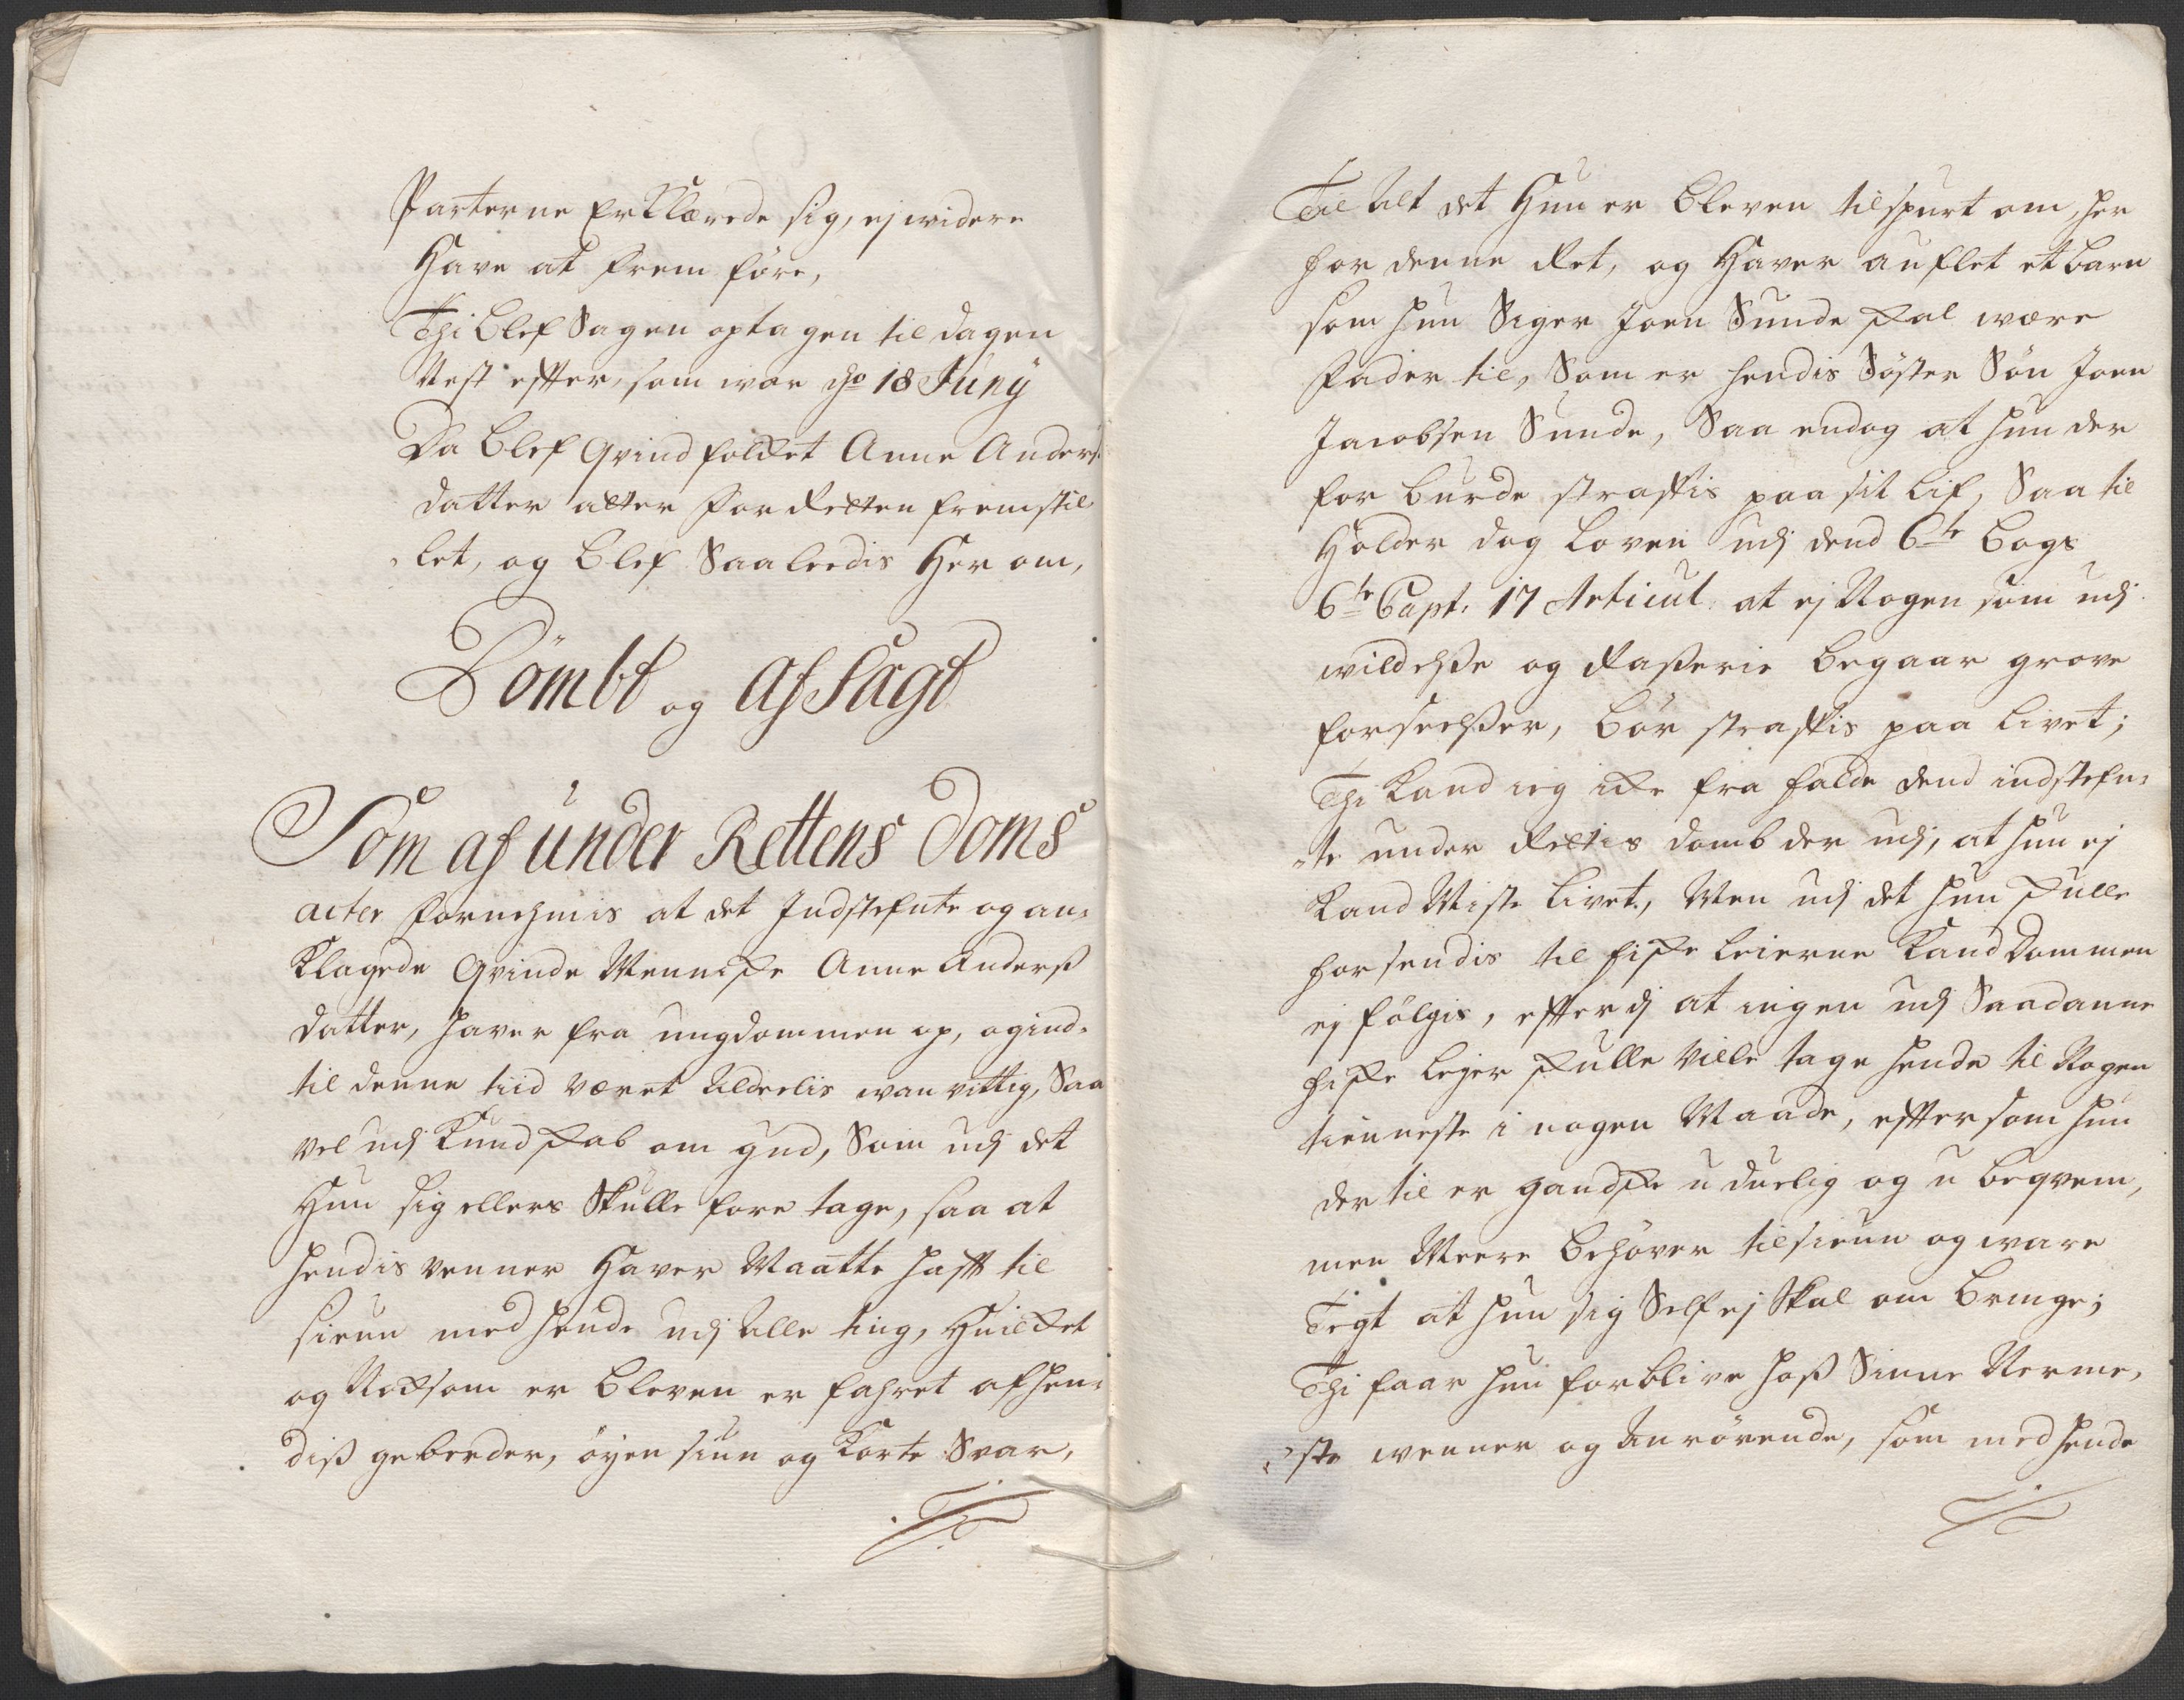 Parterne Erklærede sig, ej widere
Have at frem føre,
Thi blef Sagen optagen til dagen
Nest effter, som war dho 18 Juny
Da blef Qvindfolket Anne Anders
datter atter for Retten fremstil
let, og blef Saaleedis Her om,
Dömbt og Afsagt
Som af under Rettens Doms
acter fornehmis at det Indstefnte og an-
klagede Qvinde Menniske Anne Anderß
datter, haver fra ungdommen op, og ind-
til denne tiid været Alderlis wanvittig, Saa
vel udj Kundskab om gud, Som udj det
Hun sig ellers Skulle fore tage, saa at
hendis venner Haver Maatte hafft til
siun med hende udj Alle ting, Huilket
og Noksom er bleven er fahret af hen-
diß geberder, øyen siun og korte Svar,
Til Alt det Hun er bleven tilspurt om, her
for denne Ret, og Haver auflet et barn
som hun Siger Joen Sunde skal være
Fader til, Som er hendis Søster Søn Joen
Jacobsen Sunde, Saa endog at hun der
for burde straffis paa sit lif, Saa til
Holder dog Loven udj dend 6te Bogs
6te Capt. 17 Articul. at ej Nogen som udj
wildelße og Raßerie begaar grove
forseelßer, bör straffis paa livet;
Thi kand ieg icke fra falde dend indstefn-
te under Rettis domb der udj, at hun ej
kand Miste livet, Men udj det hun skulle
forsendis til fiske leierne kand Dommen
ej fölgis, efterdj at ingen udj Saadanne
fiske lejer skulle Ville tage hende til Nogen
tienneste i nogen Maade, effter som hun
der til er gandske u duelig og u beqvem,
men Meere behöver tilsiun og ware
Tegt at hun sig Self ej Skal om bringe;
Thi faar hun forblive hoß Sinne Nerme-
ste wenner og Anrörende, som med hende